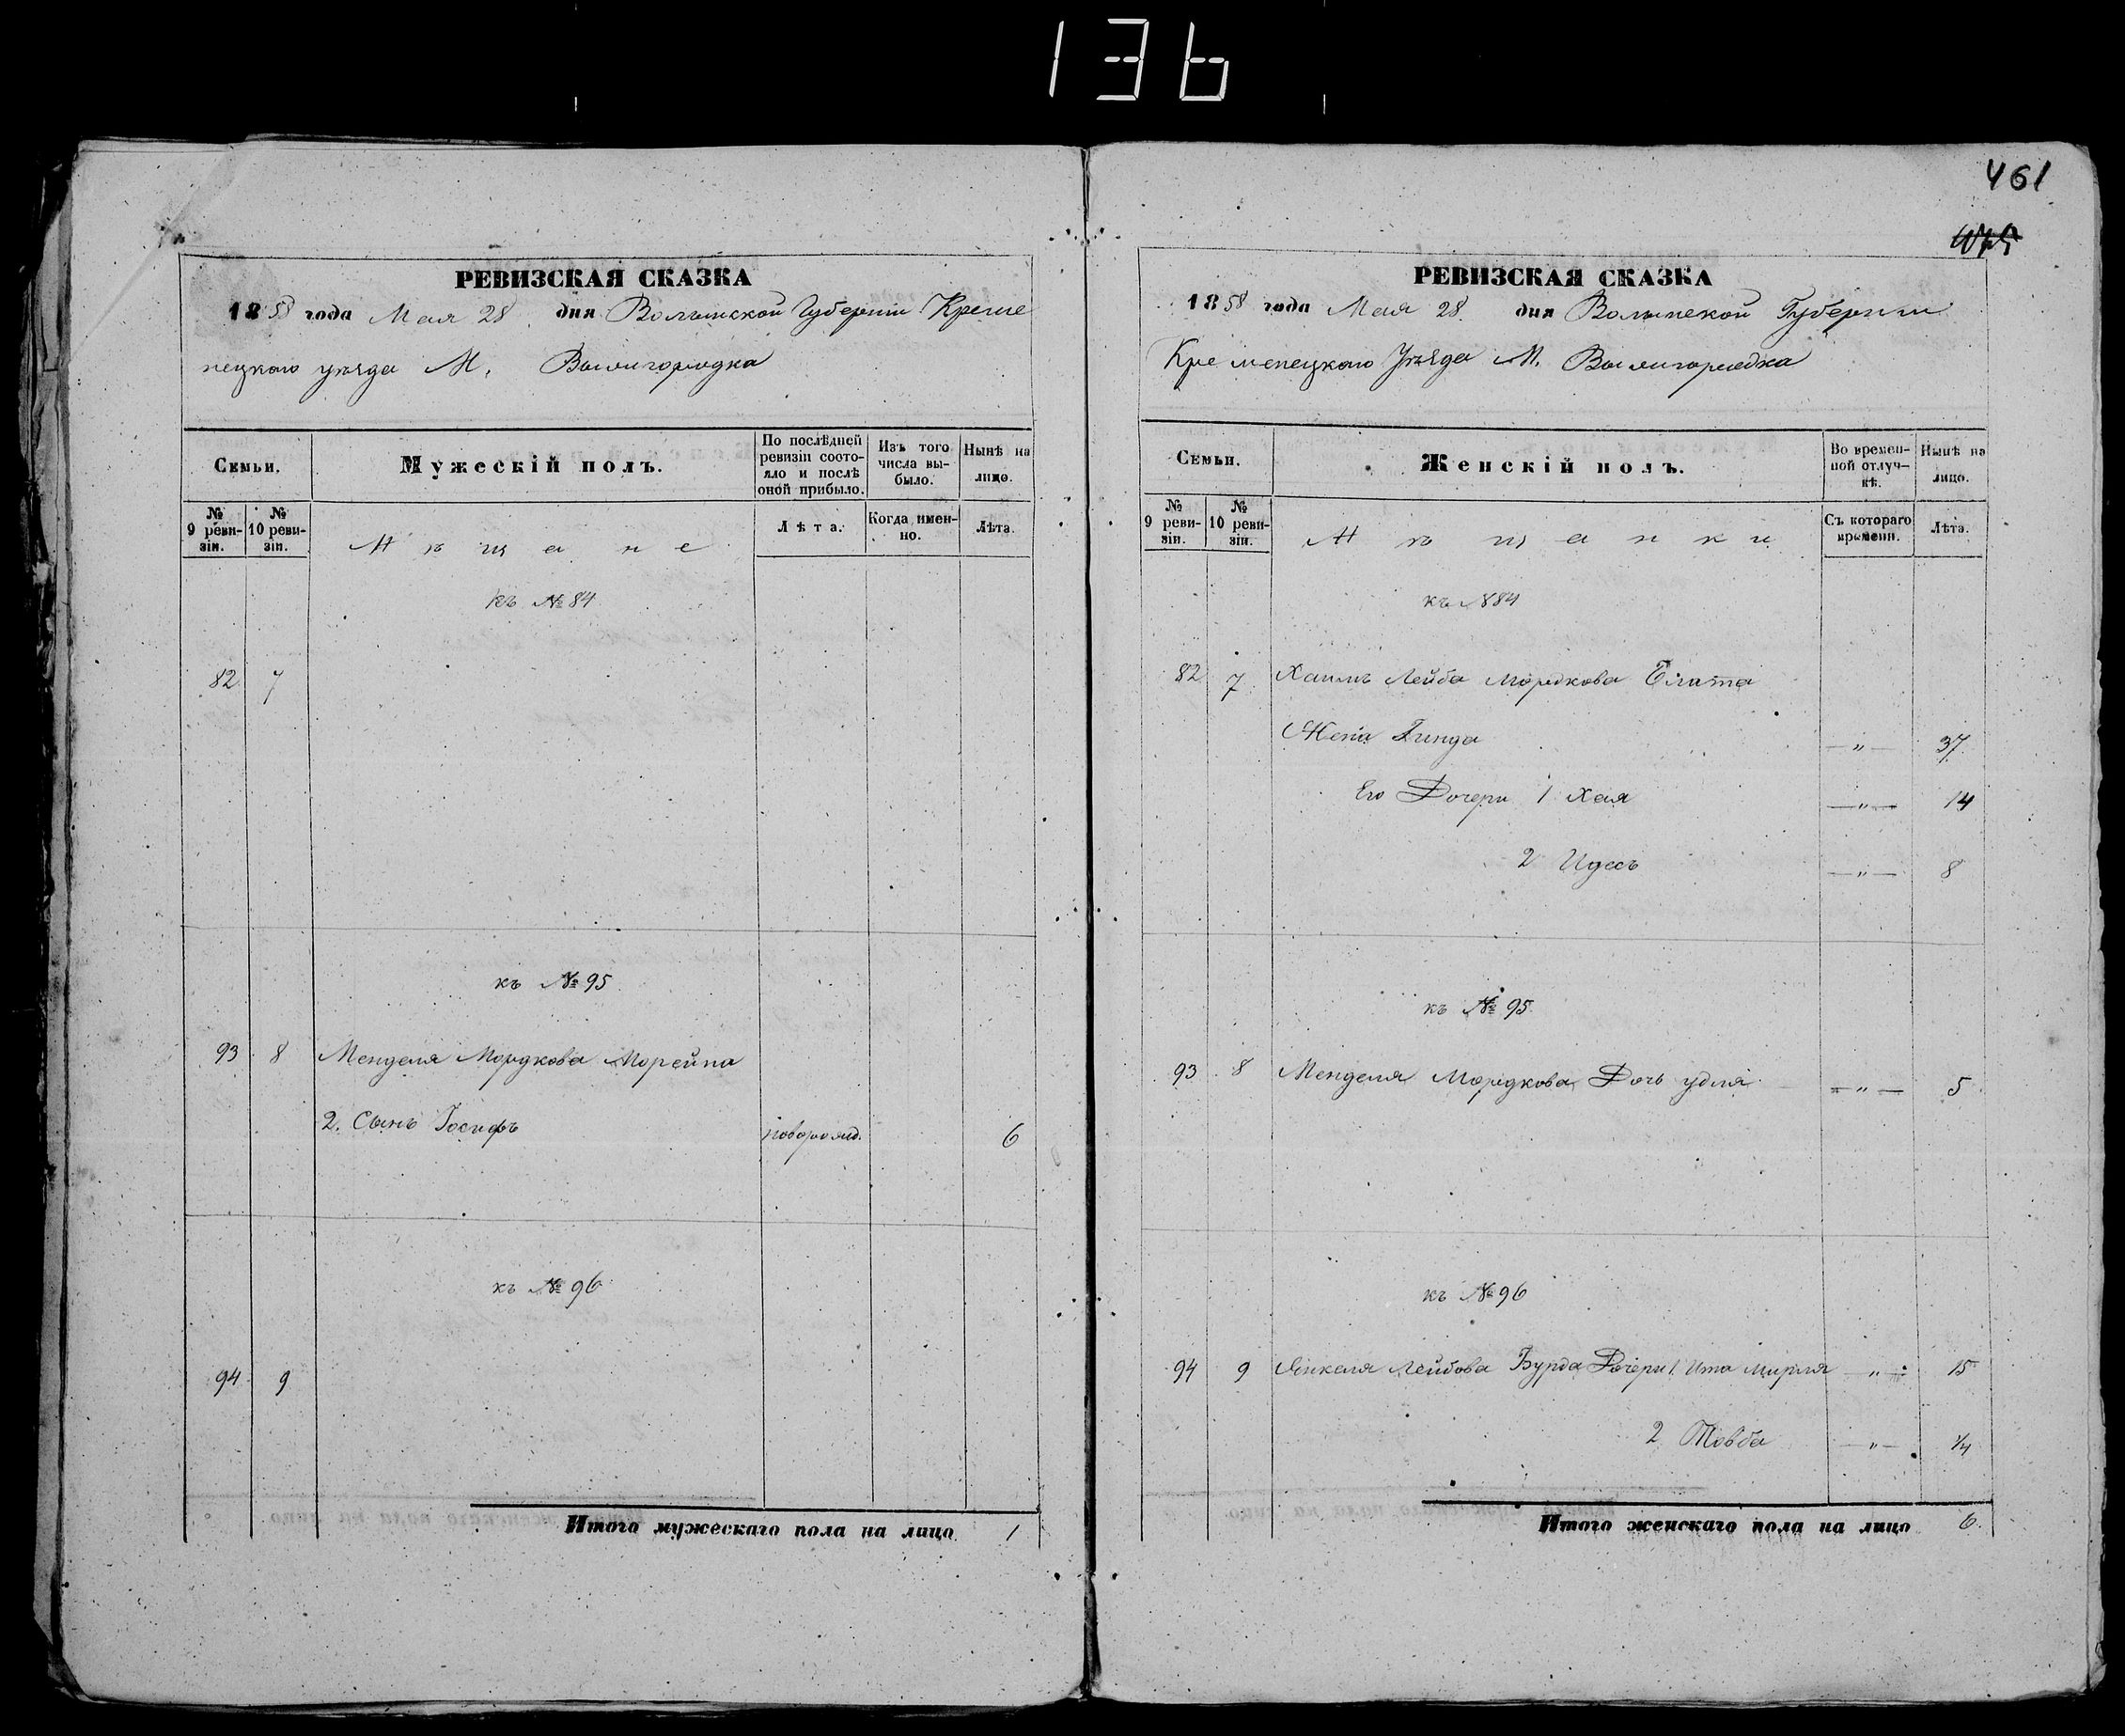 136
461
РЕВИЗСКАЯ СКАЗКА
1858 года Мая 28 дня Волынской Губернiи Креме
нецкаго уѣзда М. Вышгородка
Семьи.
Мужескiй полъ.
По послѣдней ревизiи состояло и послѣ оной прибыло.
Изъ того числа выбыло.
Нынѣ на лицо.
№ 9 ревизiи.
№ 10 ревизiи.
Мѣщане
Лѣта.
Когда именно.
Лѣта.
къ №84
82 7
къ №95
93 8 Менделя Мордкова Морейна
2. Сынъ Iосифъ новорожд. 6
къ №96
94 9
Итого мужескаго пола на лицо 1
РЕВИЗСКАЯ СКАЗКА
1858 года Мая 28 дня Волынской Губернiи
Кременецкаго Уѣзда М. Вышгородка
Семьи.
Женскiй полъ.
Во временной отлучкѣ.
Нынѣ на лицо.
№ 9 ревизiи.
№ 10 ревизiи.
Мѣщанки
Съ котораго времени.
Лѣта.
къ №84
82 7 Хаимъ Лейба Мордкова
Жена Гинда — „ — 37
Его Дочери 1 Хая — „ — 14
2 Идесъ — „ — 8
къ №95
93 8 Менделя Мордкова Дочь Удля — „ — 5
къ №96
94 9 Янкеля Лейбова Бурда Дочери 1. Ита Мирля — „ — 15
2 Товба — „ — 1/4
Итого женскаго пола на лицо 6.